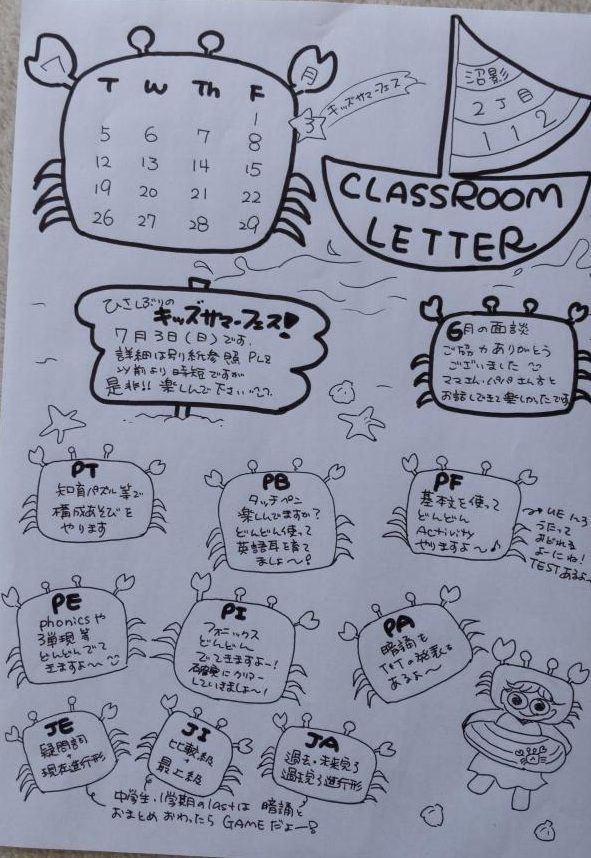 7
月
T W Th F
1
5 6 7 8
12 13 14 15
19 20 21 22
26 27 28 29
3
キッズサマーフェス
沼影
2丁目
112
CLASSROOM
LETTER
ひさしぶりの
キッズサマーフェス!
7月3日(日)です。
詳細は別紙参照PLZ
以前より時短ですが
是非!! 楽しんで下さい
6月の面談
ご協力ありがとう
ございました
ママさん・パパさん方と
お話しできて楽しかったです
PT
知育パズル等で
構成あそびを
やります
PB
タッチペン
楽しんでますか?
どんどん使って
英語耳を育て
ましょ〜!
PF
基本文を使って
どんどん
Activity
やりますよ〜♪
→UE 1〜3
うたって
おどれる
よーにね!
TESTあるよ〜
PE
phonicsや
3単現等
どんどんでて
きますよ〜
PI
フォニックス
どんどん
でてきますよー!
確実にクリアー
していきましょ〜!
PA
暗誦と
T&Tの発表も
あるよ〜
JE
疑問詞
+
現在進行形
JI
比較級
+
最上級
JA
過去・未来完了
過去完了進行形
中学生、1学期のlastは 暗誦と
おまとめ おわったら GAMEだよー!